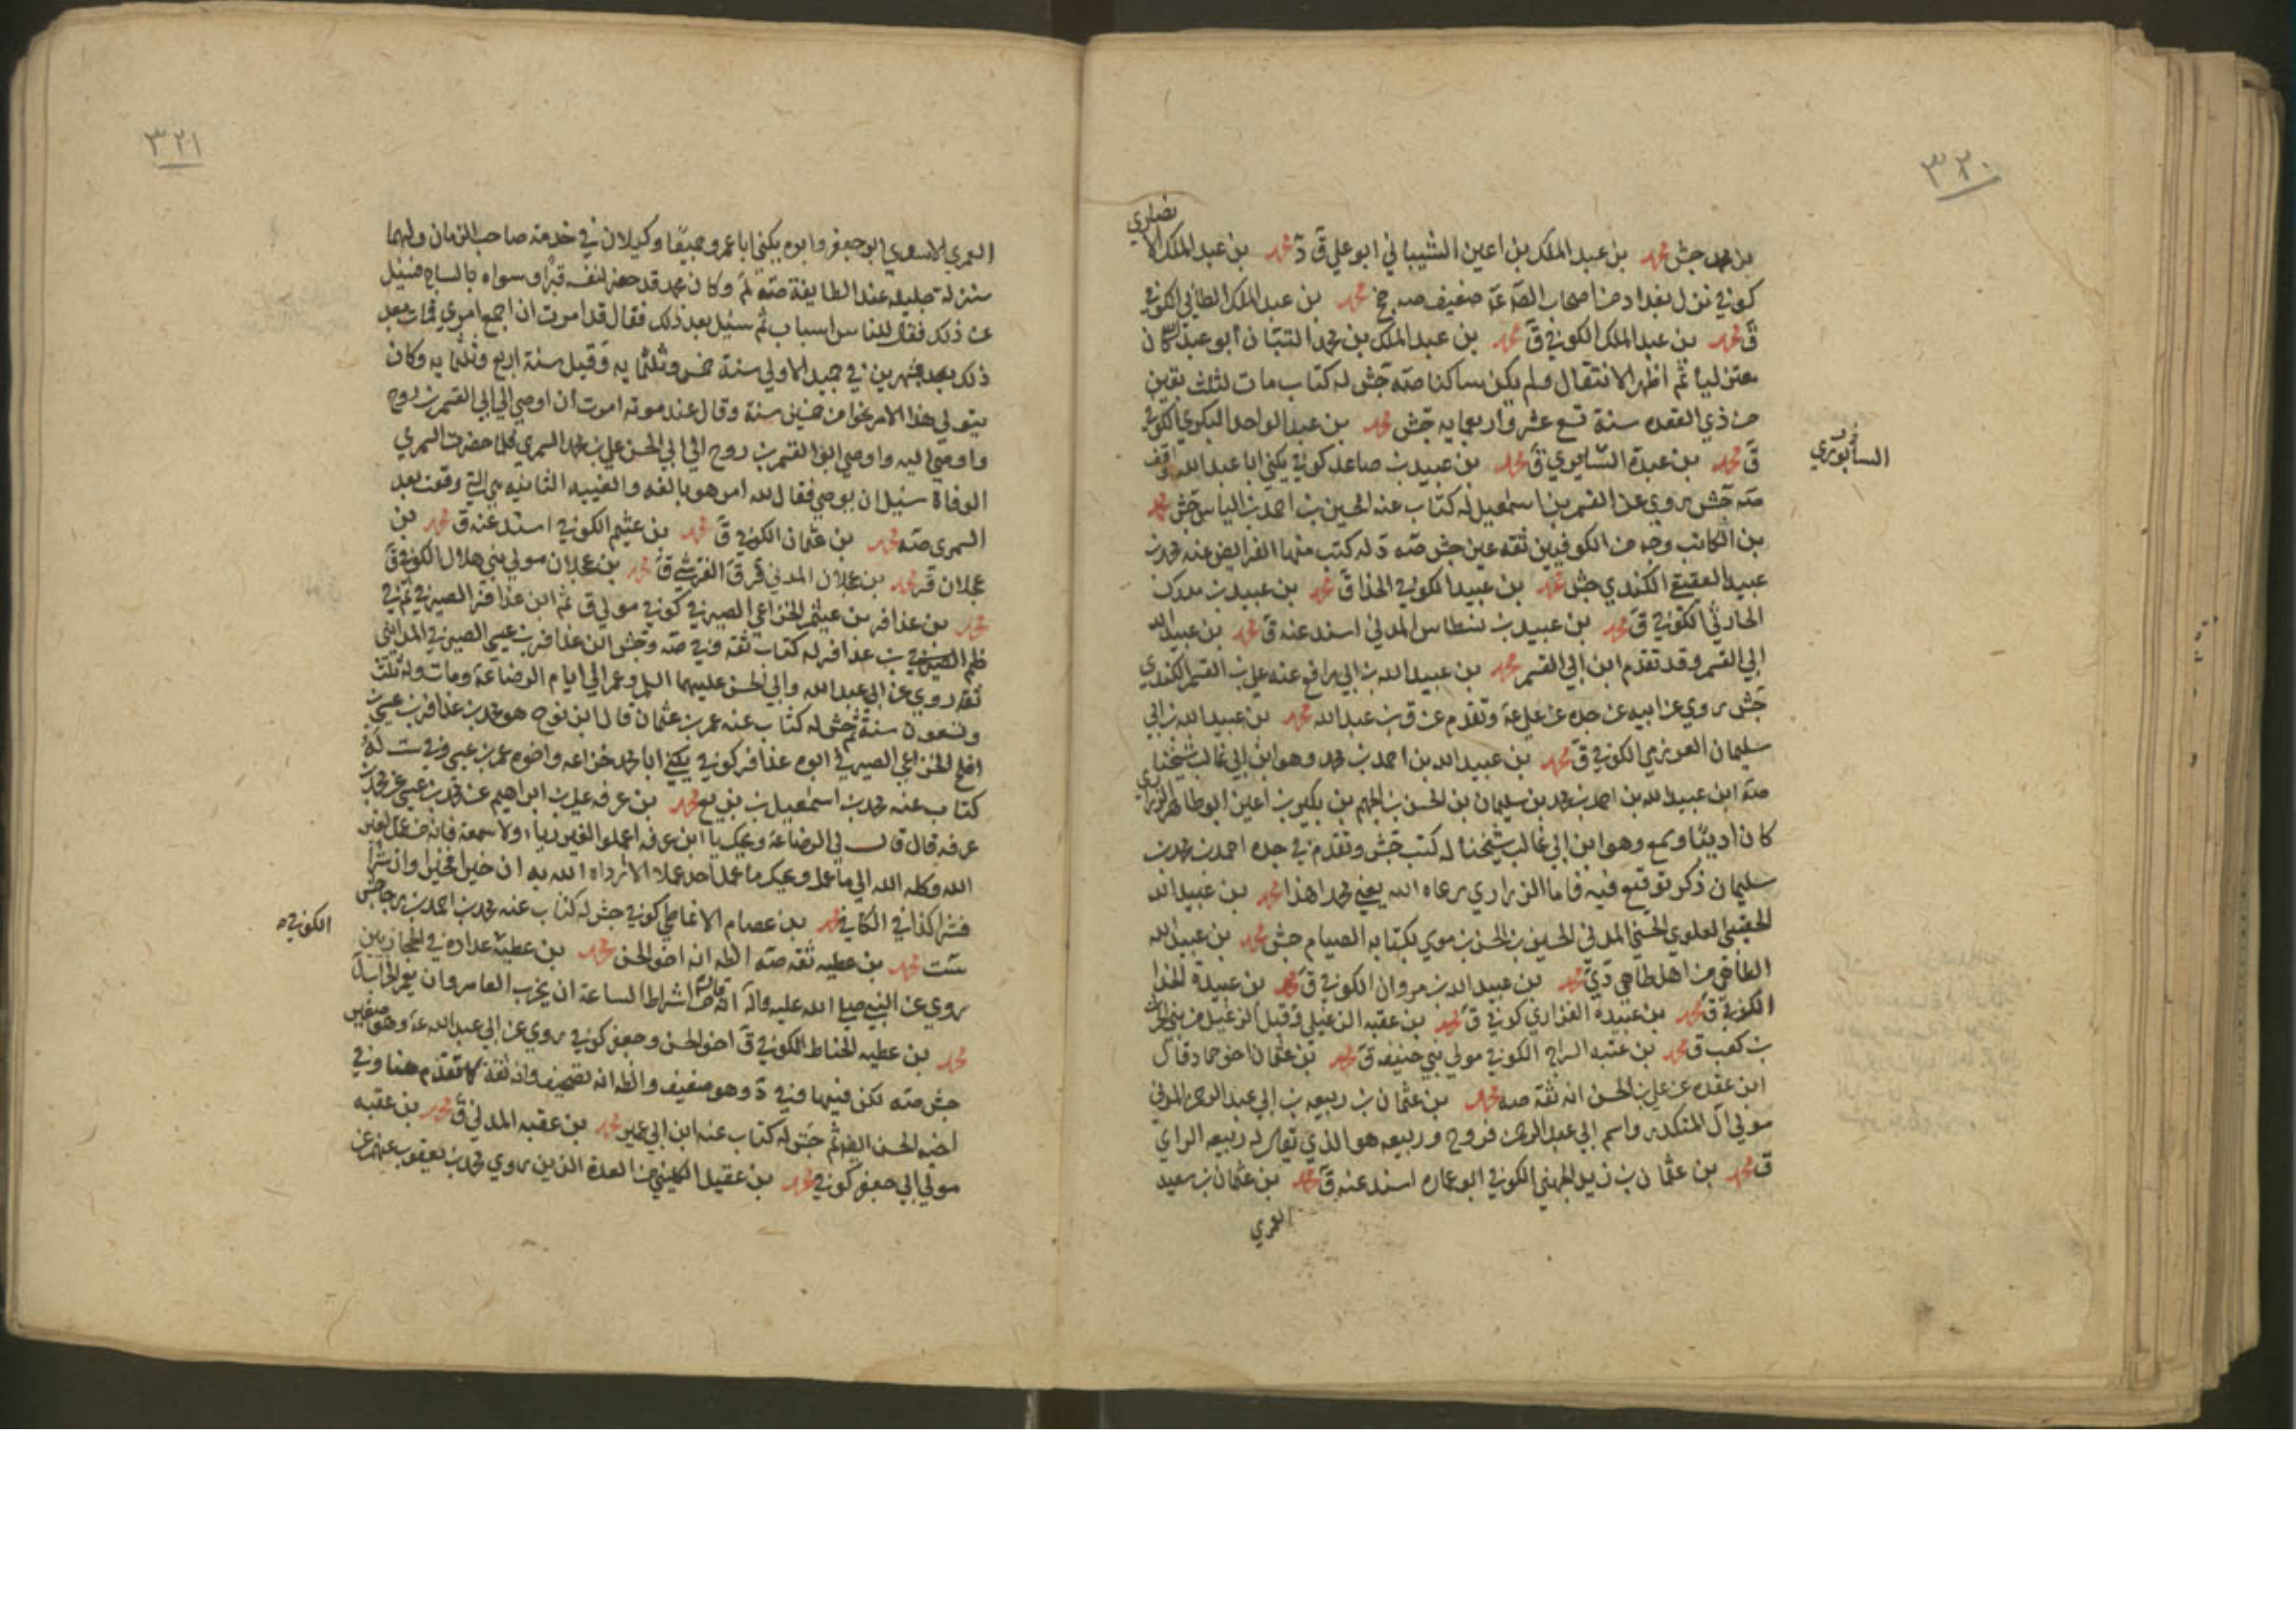 ٣٢٠
نصاري
بن محمد جش محمد بن عبد الملك بن اعين الشيباني ابو علي ق د محمد بن عبد الملك الا
كوفي نزل بغداد من اصحاب الصم عم ضعيف صه جخ محمد بن عبد الملك الطائي الكوفي
ق محمد بن عبد الملك الكوفي ق محمد بن عبد الملك بن محمد التبان أبو عبد الله كان
معتزليا ثم اظهر الانتقال ولم يكن ساكنا صه جش له كتاب مات لثلث بقين
من ذي القعده سنة تسع عشر واربعمايه جش محمد بن عبد الواحد البكري الكوفي
ق محمد بن عبدة السابوري ق محمد بن عبيد بن صاعد كوفي يكني ابا عبد الله واقف
السابوري
صه جش يروي عن القسم بن اسمعيل له كتاب عنه الحسين بن احمد بن الياس جش محمد
بن الكاتب وجه من الكوفيين ثقه عين جش صه د له كتب منها الفرايض عنه محمد بن
عبيد العقيقي الكندي جش محمد بن عبيد الكوفي الحذا ق محمد بن عبيد بن مدرك
الحارثي الكوفي ق محمد بن عبيد بن نسطاس المدني اسند عنه ق محمد بن عبيد الله
ابي القسم وقد تقدم ابن ابي القسم محمد بن عبيد الله بن ابي رافع عنه علي بن القسم الكندي
جش يروي عن ابيه عن جده عن علي عم وتقدم عن ق بن عبد الله محمد بن عبيد الله بن ابي
سليمان العرزمي الكوفي ق محمد بن عبيد الله بن احمد بن محمد وهو ابن ابي غالب شيخنا
صه ابن عبيد الله بن احمد بن محمد بن سليمان بن الحسن بن الجهم بن بكير بن اعين ابو طاهر الزراري
كان اديبا وسمع وهو ابن ابي غالب شيخنا له كتب جش وتقدم في جده احمد بن محمد بن
سليمان ذكر توقيع فيه فاما الزراري رعاه الله يعني محمدا هذا محمد بن عبيد الله
الحقيني العلوي الحسني المدني الحسين بن الحسن بن موسي بكتابه الصيام جش محمد بن عبيد الله
الطاهي من اهل طاهي دي محمد بن عبيد الله بن مروان الكوفي ق محمد بن عبيدة الحذا
الكوفي ق محمد بن عبيدة الفزاري كوفي ق محمد بن عقبه الزغيلي وقيل الزغيل من بني الحرث
بن كعب ق محمد بن عتبه السراج الكوفي مولي بني حنيفه ق محمد بن عثمان اخو حماد قال
ابن عقده عن علي بن الحسن انه ثقة صه محمد بن عثمان بن ربيعه بن ابي عبد الرحمن المدني
مولي آل المنكدر واسم ابي عبد الرحمن فروخ وربيعه هو الذي يقال له ربيعه الراي
ق محمد بن عثمان بن زيد الجهني الكوفي ابو عماره اسند عنه ق محمد بن عثمان بن سعيد
العمري
٣٢١
العمري الاسدي ابو جعفر وابوه يكني ابا عمرو جميعا وكيلان في خدمة صاحب الزمان ولهما
منزلة جليله عند الطايفة صه لم وكان محمد قد حفر لنفسه قبرا وسواه بالساج فسئل
عن ذلك فقال للناس اسباب ثم سئل بعد ذلك فقال قد امرت ان اجمع امري فمات بعد
ذلك بعد شهرين في جميد الاولي سنة خمس وثلثمايه وقيل سنة اربع وثلثمايه وكان
يتولي هذا الامر نحوا من خمسين سنة وقال عند موته امرت أن اوصي الي ابي القسم بن روح
واوصي اليه واوصي ابو القسم بن روح الي ابي الحسن علي بن محمد السمري فلما حضرت السمري
الوفاة سئل ان يوصي فقال لله امر هو بالغه والغيبه الثانيه هي التي وقعت بعد
السمري صه محمد بن عثمان الكوفي ق محمد بن عثيم الكوفي اسند عنه ق محمد بن
عجلان قر محمد بن عجلان المدني قر ق القرشي ق محمد بن عجلان مولي بني هلال الكوفي ق
محمد بن عذافر بن عيثم الخزاعي الصيرفي كوفي مولي ق ثم ابن عذافر الصيرفي ثم في
ظم الصيرفي بن عذافر له كتاب ثقه وفي صه وجش ابن عذافر بن عيسي الصيرفي المدايني
ثقه روي عن ابي عبد الله وابي الحسن عليهما السلم وعمر الي ايام الرضا عم ومات وله ثلث
وتسعون سنة ثم جش له كتاب عنه عمر بن عثمان قال ابن نوح هو محمد بن عذافر بن عيسي بن
افلح الخزاعي الصيرفي ابوه عذافر كوفي يكني ابا محمد خزاعه واخوه عمر بن عيسي وفي ست له
كتاب عنه محمد بن اسمعيل بن بزيع محمد بن عرفه علي بن ابراهيم عن محمد بن عيسي عن محمد بن
عرفه قال قال لي الرضا عم ويحك يا ابن عرفه اعملوا لغير رياء ولا سمعة فانه من عمل لغير
الله وكله الله الي ما عمل ويحك ما عمل احد عملا الا رداه الله به ان خيرا فخيرا وان شرا
فشرا كذا في الكافي محمد بن عصام الانماطي كوفي جش له كتاب عنه محمد بن احمد بن
ست محمد بن عطيه ثقه صه الظ انه اخو الحسن محمد بن عطية عداده في الحجازيين
الكوفي
يروي عن النبي صلي الله عليه واله انه قال من اشراط الساعة ان يخرب العامر وان يعمر الخراب ل
محمد بن عطيه الحناط الكوفي ق اخو الحسن وجعفر كوفي يروي عن ابي عبد الله عم وهو صغير
جش صه لكن فيها وفي د وهو ضعيف والظ انه تصحيف وانه ثقة كما تقدم هنا وفي
اخيه الحسن ايضا ثم جش له كتاب عنه ابن ابي عمير محمد بن عقبه المدني ق محمد بن عقبه
مولي ابي جعفر كوفي محمد بن عقيل الكليني من العدة الذين يروي محمد بن يعقوب عنهم عن